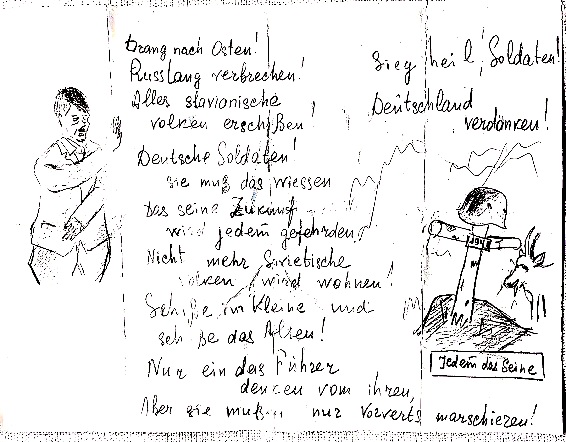 Drang nach Osten!
Russlang verbrechen!
Alles slavianische
volken erschißen!
Deutsche Soldaten!
sie muß das wiessen
Das seine Zukunft
wird jedem gefehrden,
Nicht mehr Sovietische
volken wird wohnen!
Schiße im Kleine und
schiße das Alten!
Nur ein das Führer
dencen vom ihren,
Aber sie mußen nur Vorverts marschieren!
Sieg heil, Soldaten!
Deutschland
verdanken!
Jedem das Seine